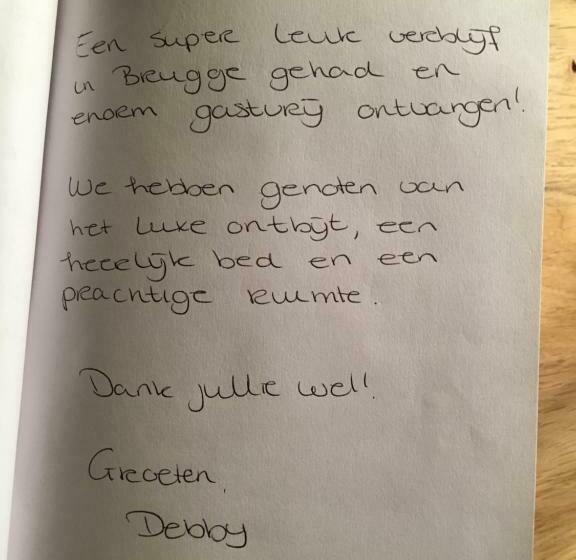 Een super leuk verblijf
in Brugge gehad en
enorm gastvrij ontvangen!
We hebben genoten van
het luxe ontbijt, een
heerlijk bed en een
prachtige ruimte.
Dank jullie wel!
Groeten,
Debby